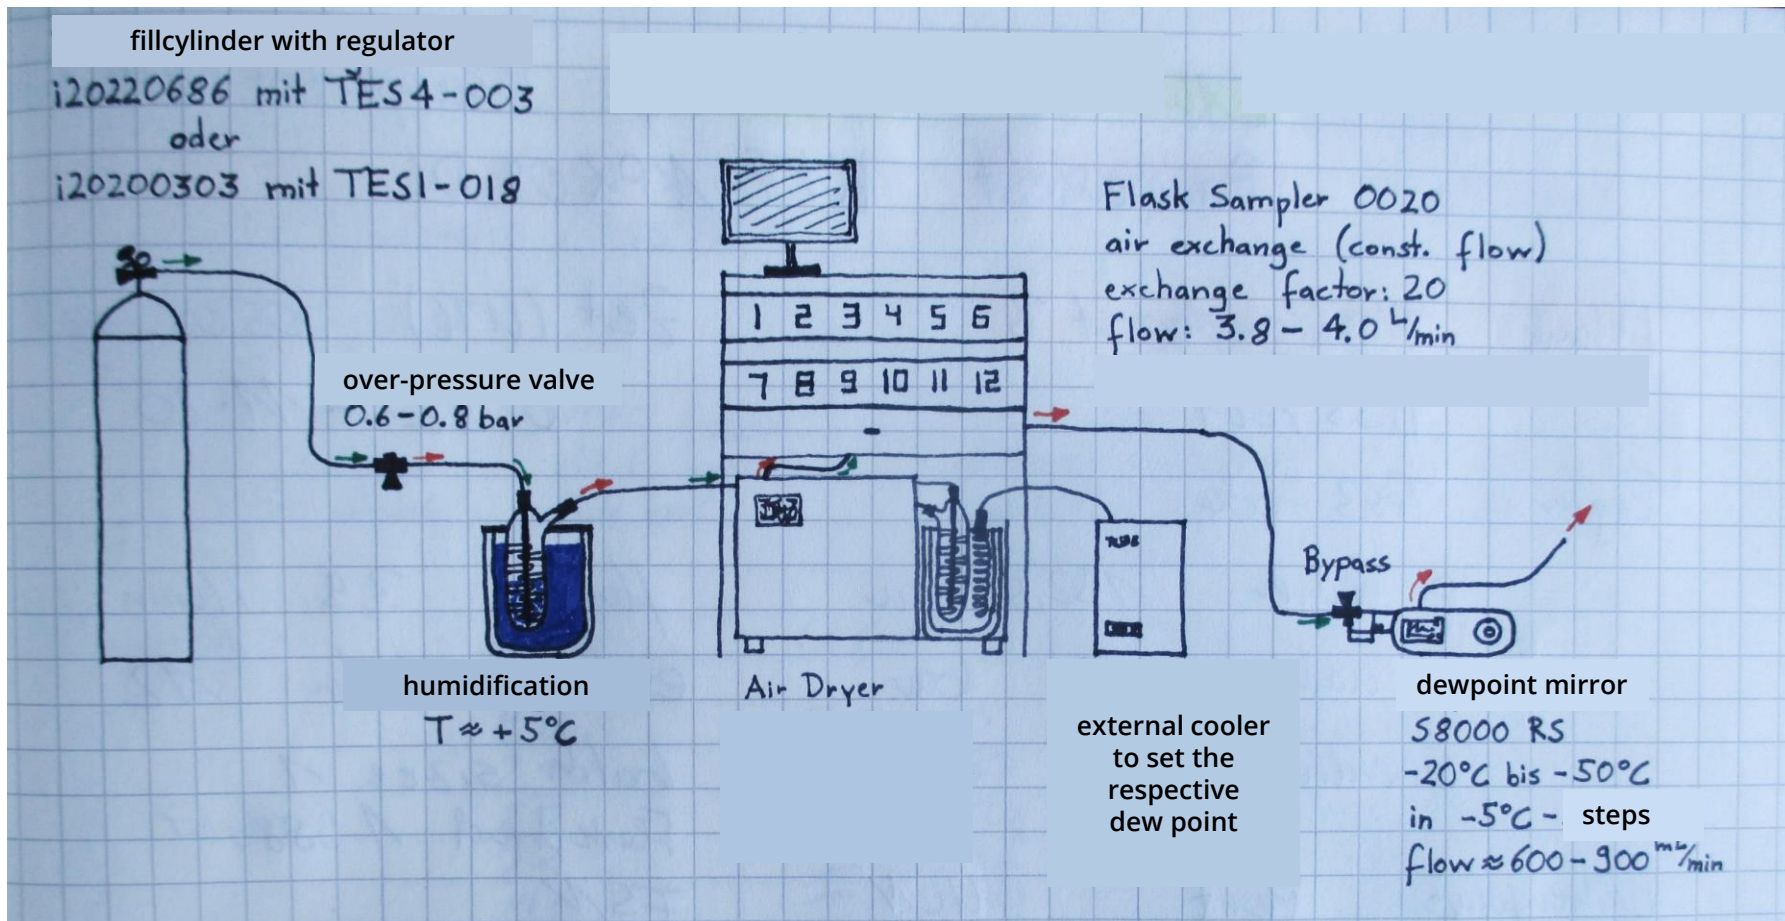 fillcylinder with regulator
i20220686 mit TES4-003
oder
i20200303 mit TES1-018
Flask Sampler 0020
air exchange (const. flow)
exchange factor: 20
flow: 3.8 - 4.0 L/min
1 2 3 4 5 6
7 8 9 10 11 12
over-pressure valve
0.6 - 0.8 bar
Bypass
humidification
T ≈ +5°C
Air Dryer
external cooler
to set the
respective
dew point
dewpoint mirror
S8000 RS
-20°C bis -50°C
in -5°C - steps
flow ≈ 600 - 900 mL/min